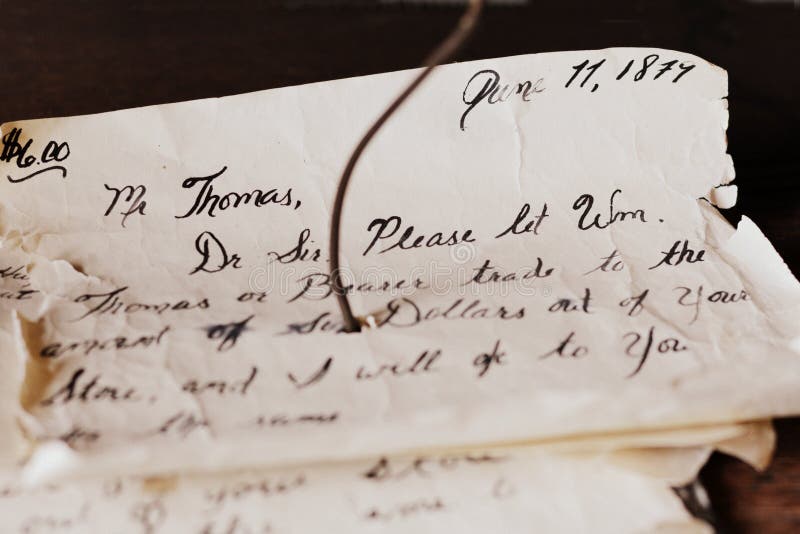 June 11, 1879
$6.00
Mr Thomas,
Dr Sir, Please let Wm.
Thomas or Bearer trade to the
amount of Six Dollars out of Your
Store, and I will ok to You
to the same